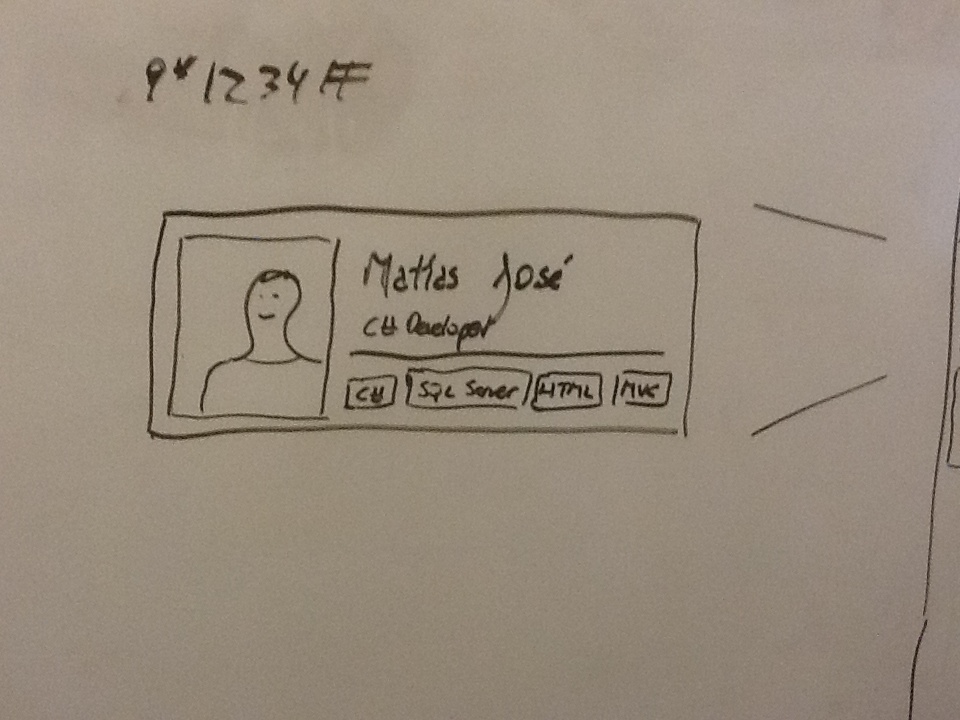 9*1234#
Matías José
C# Developer
C# SQL Server HTML MVC